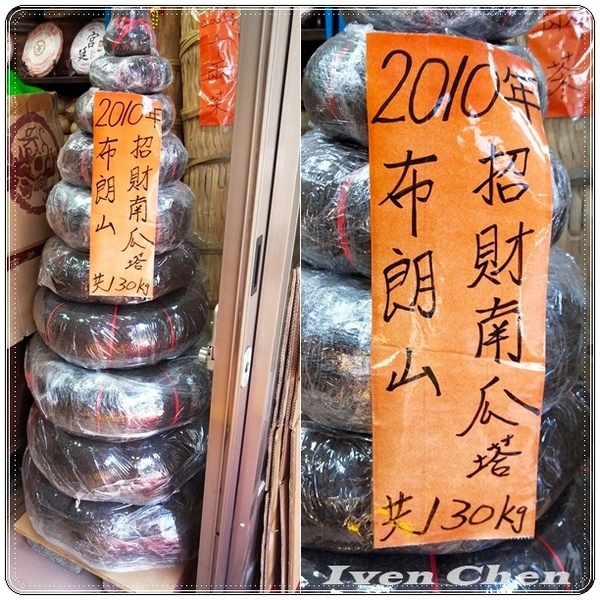 宮廷
2010年
招財南瓜塔
布朗山
共130kg
2010年
招財南瓜塔
布朗山
共130kg
Iven Chen